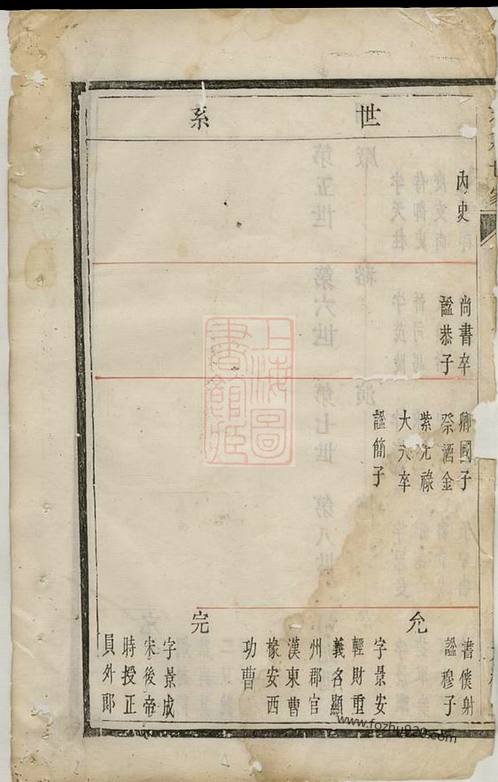 世系
內史
尚書卒
諡恭子
卿國子
祭酒金
紫光祿
大夫卒
諡簡子
書僕射
諡穆子
允
字景安
輕財重
義名顯
州郡官
漢東曹
椽安西
功曹
完
字景成
宋後帝
時授正
員外郎
上海圖
書館藏
www.fozhu920.com